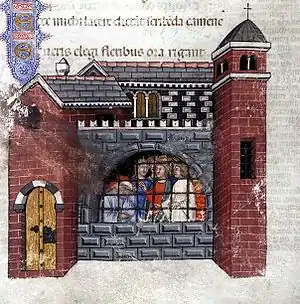 michi lacere dictāt scribēda camene
ueris elegi fletibus ora rigant